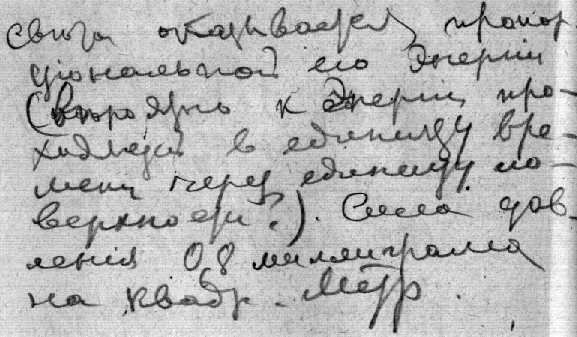 света оказывается пропор
ціональной его Энергіи
(вѣроятно к Энергіи, про-
ходящей в единицу вре-
мени через единицу по-
верхности?). Сила дав
ленія 0,8 миллиграмма
на квадр. Метр.